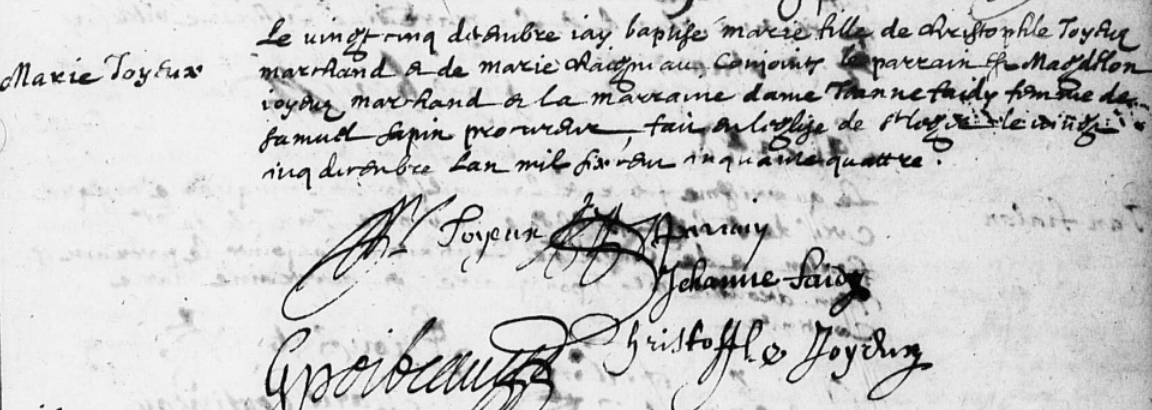 Marie Joyeux
Le vingt cinq decembre iay baptisé marie fille de christophle Joyeux
marchand et de marie chaigneau conjoints le parrain est Magdelon
joyeux marchand et la marraine dame Jeanne faidy femme de
samuel sapin procureur fait en leglise de st legie le vingt
cinq decembre Lan mil six cent cinquante quattre.
Joyeux parrain
Jehanne faidy
Christoffle Joyeux